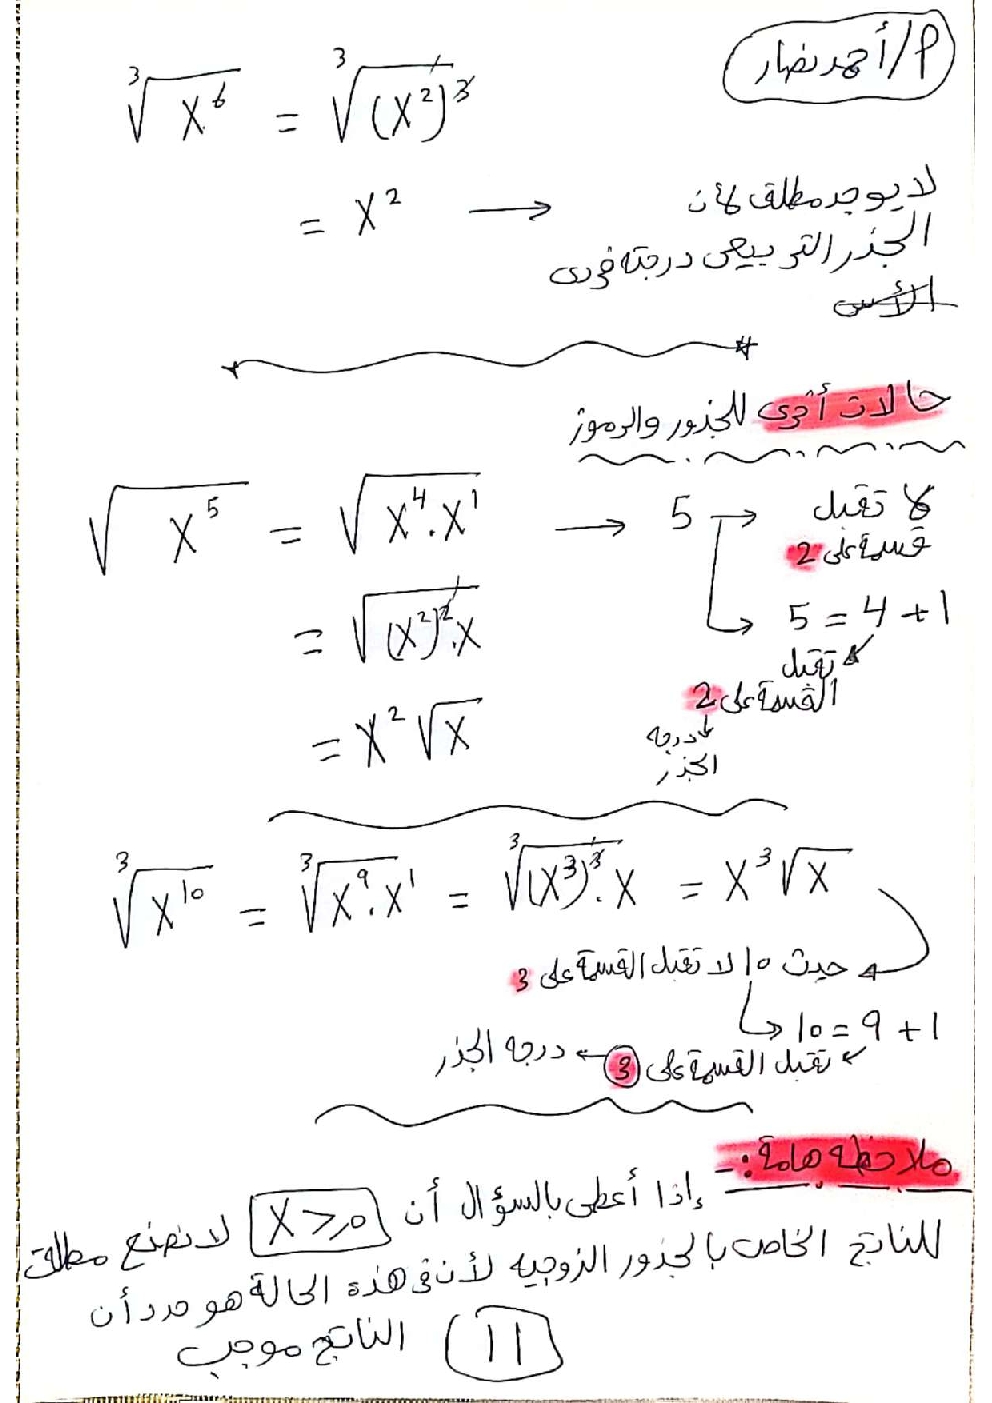 م/أحمد نصار
∛(X⁶) = ∛((X²)³)
= X² → لا يوجد مطلق لأن
الجذر التربيعي درجته فردى
الأس
حالات أخرى للجذور والرموز
√(X⁵) = √(X⁴.X¹) → 5 → لا تقبل
قسمة على 2
= √((X²)².X)
5 = 4 + 1
تقبل
القسمة على 2
درجه
الجذر
= X²√X
∛(X¹⁰) = ∛(X⁹.X¹) = ∛((X³)³.X) = X³√X
حيث 10 لا تقبل القسمة على 3
10 = 9 + 1
تقبل القسمة على 3 ← درجه الجذر
ملاحظه هامة:-
إذا أعطى بالسؤال أن X>0 لا نضع مطلق
للناتج الخاص بالجذور الزوجيه لأن فى هذه الحالة هو حدد أن
الناتج موجب
11